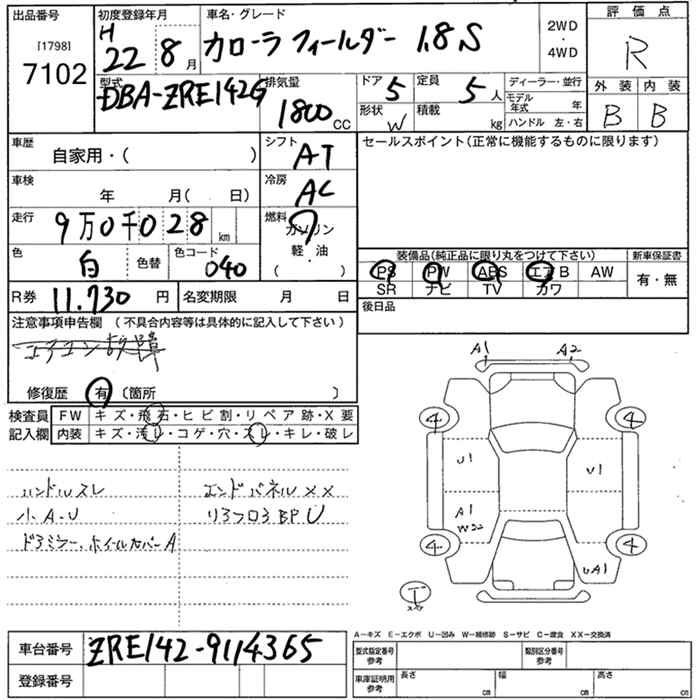 出品番号
[1798]
7102
初度登録年月
H
22 8 月
車名・グレード
カローラ フィールダー 1.8S
2WD
4WD
評価点
R
型式
DBA-ZRE142G
排気量
1800 CC
ドア 5
定員 5 人
形状 W
積載 kg
ディーラー・並行
モデル年式 年
ハンドル 左・右
外装 内装
B B
車歴
自家用・( )
シフト
AT
セールスポイント(正常に機能するものに限ります)
車検
年 月( 日)
冷房
AC
走行
9万0千028 km
燃料
ガソリン
軽・油
( )
色
白 色替
色コード
040
装備品(純正品に限り丸をつけて下さい)
新車保証書
PS PW ABS エアB AW
SR ナビ TV カワ
有・無
R券 11.730 円
名変期限 月 日
後日品
注意事項申告欄 (不具合内容等は具体的に記入して下さい)
エアコン故障
修復歴 有 〔箇所 〕
検査員
記入欄
FW キズ・飛石・ヒビ割・リペア跡・X要
内装 キズ・汚レ・コゲ・穴・スレ・キレ・破レ
ハンドルスレ
小A-U
ドアミラー、ホイールカバーA
エンドパネルXX
リアフロアBP U
A1 A2
4 4
U1 U1
A1
W22
4 4
UA1
T
A-キズ E-エクボ U-凹み W-補修跡 S-サビ C-腐食 XX-交換済
車台番号 ZRE142-9114365
登録番号
型式指定番号
参考
類別区分番号
参考
車庫証明用
参考
長さ cm
幅 cm
高さ cm